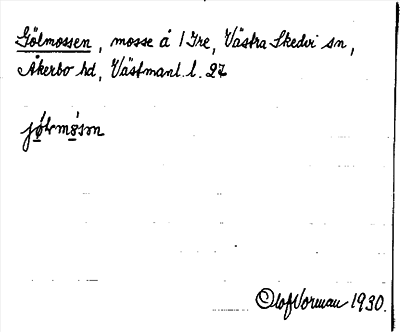 Gölmossen, mosse å 1 Ire, Västra Skedvi sn,
Åkerbo hd, Västmanl. l. 27
Olof Vorman 1930.